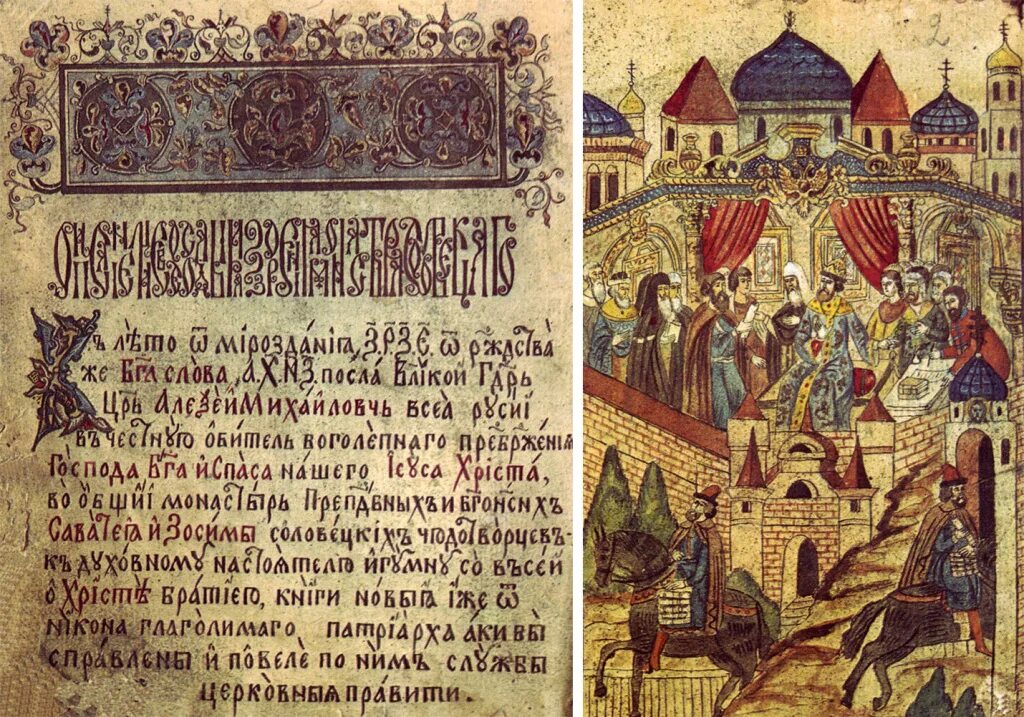 Въ лѣто ѿ мірозданіѧ, З҃.Р.Ѯ.Е҃, ѿ рж҃дства
же Бг҃а слова, А҃.Х.Н.З҃. посла̀ Вл҃ікой Гдр҃ь
Црь Алеѯе́й Миха́йловчь всеа̀ русиі
въ честную ѻбитель боголепнаго преѻбрженіѧ
Го́спода Бг҃а и Спа́са на́шего Іеу́са Хріста̀,
во ѻбщиі монастырь Препдбныхъ и Бгоносныхъ
Савате́ѧ и Зоси́мы солове́цкіхъ чюдотво́рцевъ-
къ духо́вному настоѧтелю и҆гумну со въсе́й
ѻ Хрі́стѣ бра́тиею, кнІ́ги но́выѧ і́же ѿ
Ні́кона глаго́лимаго патріарха а́ки вы
спра́влены и҆ по̀веле по ни́мъ слу́жбы
церко́вныѧ пра́вити.
2